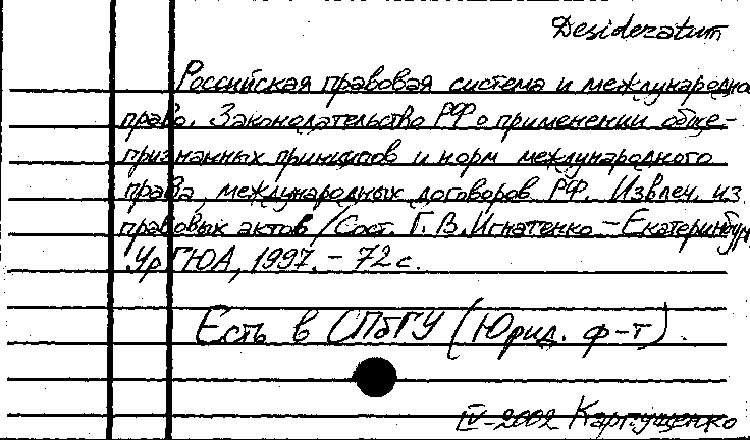 Desideratum
Российская правовая система и международно
право. Законодательство РФ о применении обще-
признанных принципов и норм международного
права, международных договоров РФ. Извлеч. из
правовых актов / Сост. Г. В. Игнатенко – Екатеринбург,
УрГЮА, 1997. – 72 с.
Есть в СПбГУ (Юрид. ф-т).
IV-2002 Карпущенко